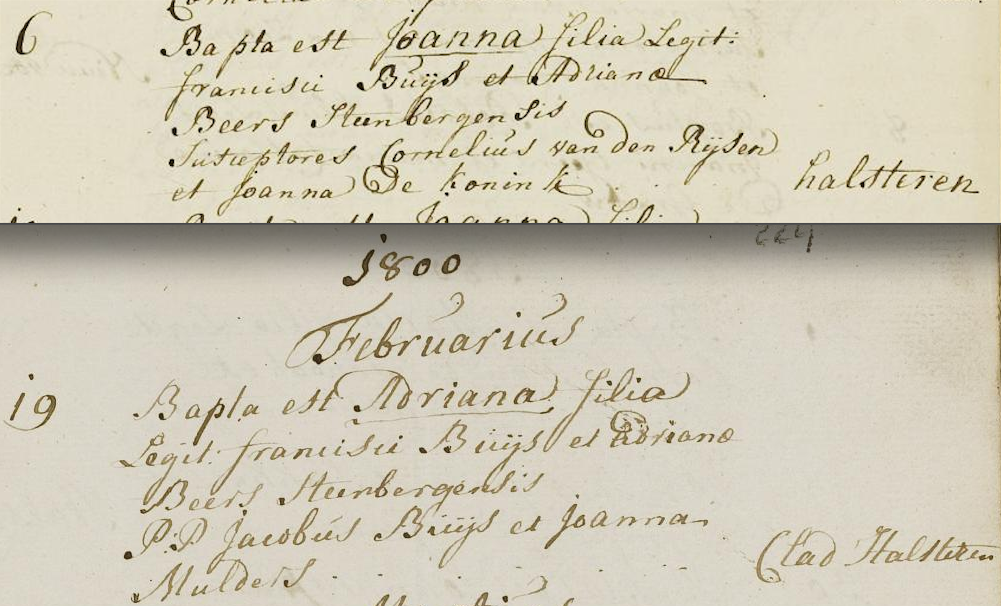 6
Bapta est Joanna filia Legit:
francisci Buijs et Adrianæ
Beers Steenbergensis
Susceptores Cornelius van den Rijsen
et Joanna De Konink
halsteren
224
1800
Februarius
19
Bapta est Adriana filia
Legit. francisci Buijs et Adrianæ
Beers Steenbergensis
P:P Jacobus Buijs et Joanna
Mulders
Halsteren